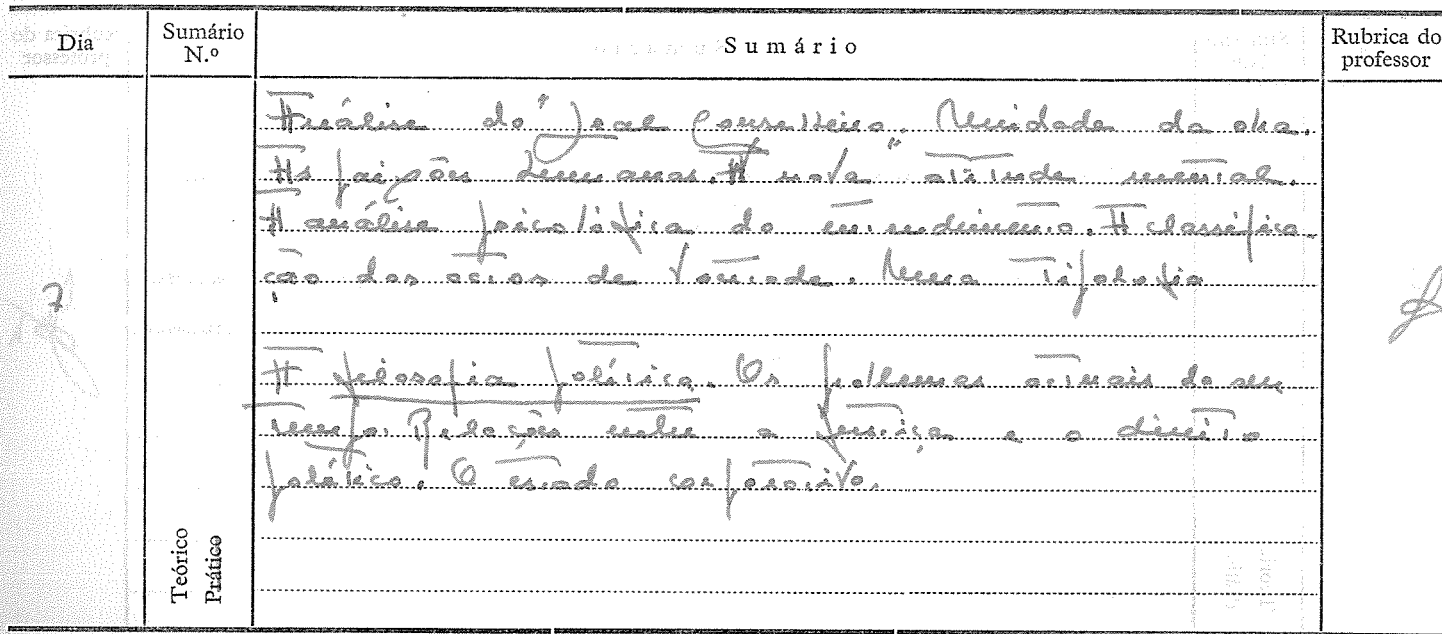 Dia
Sumário N.º
Sumário
Rubrica do professor
Análise do "Leal Conselheiro". Unidade da obra.
As paixões humanas. A nova atitude mental.
A análise psicológica do entendimento. A classifica-
ção dos actos de vontade. Uma Tipologia
7
A filosofia política. Os problemas actuais do seu
tempo. Relações entre a justiça e o direito
político. O estado corporativo.
Teórico
Prático